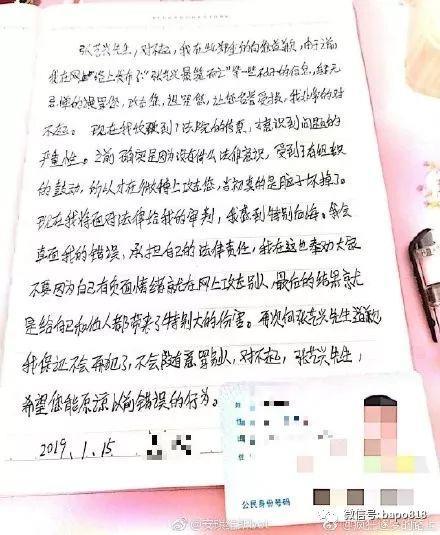 张艺兴先生，对不起，我在此郑重的向您道歉，由于之前
我在网上发布了"张艺兴
的诽谤您，攻击您，诅咒您，让您名誉受损，我非常的对
不起。现在我收到了法院的传票，才意识到问题的
严重性。之前确实是因为没有什么法律意识，受到了有组织
的鼓动，所以才在微博上攻击您，当初真的是脑子坏掉了。
现在我将面对法律给我的审判，我感到特别后悔。我会
直面我的错误，承担自己的法律责任，我在这也奉劝大家
不要因为自己有负面情绪就在网上攻击别人，最后的结果就
是给自己和他人都带来了特别大的伤害。再次向张艺兴先生道歉
我保证不会再犯了，不会随意骂别人，对不起，张艺兴先生，
希望您能原谅以前错误的行为。
2019.1.15
公民身份号码
微信号:bapo818